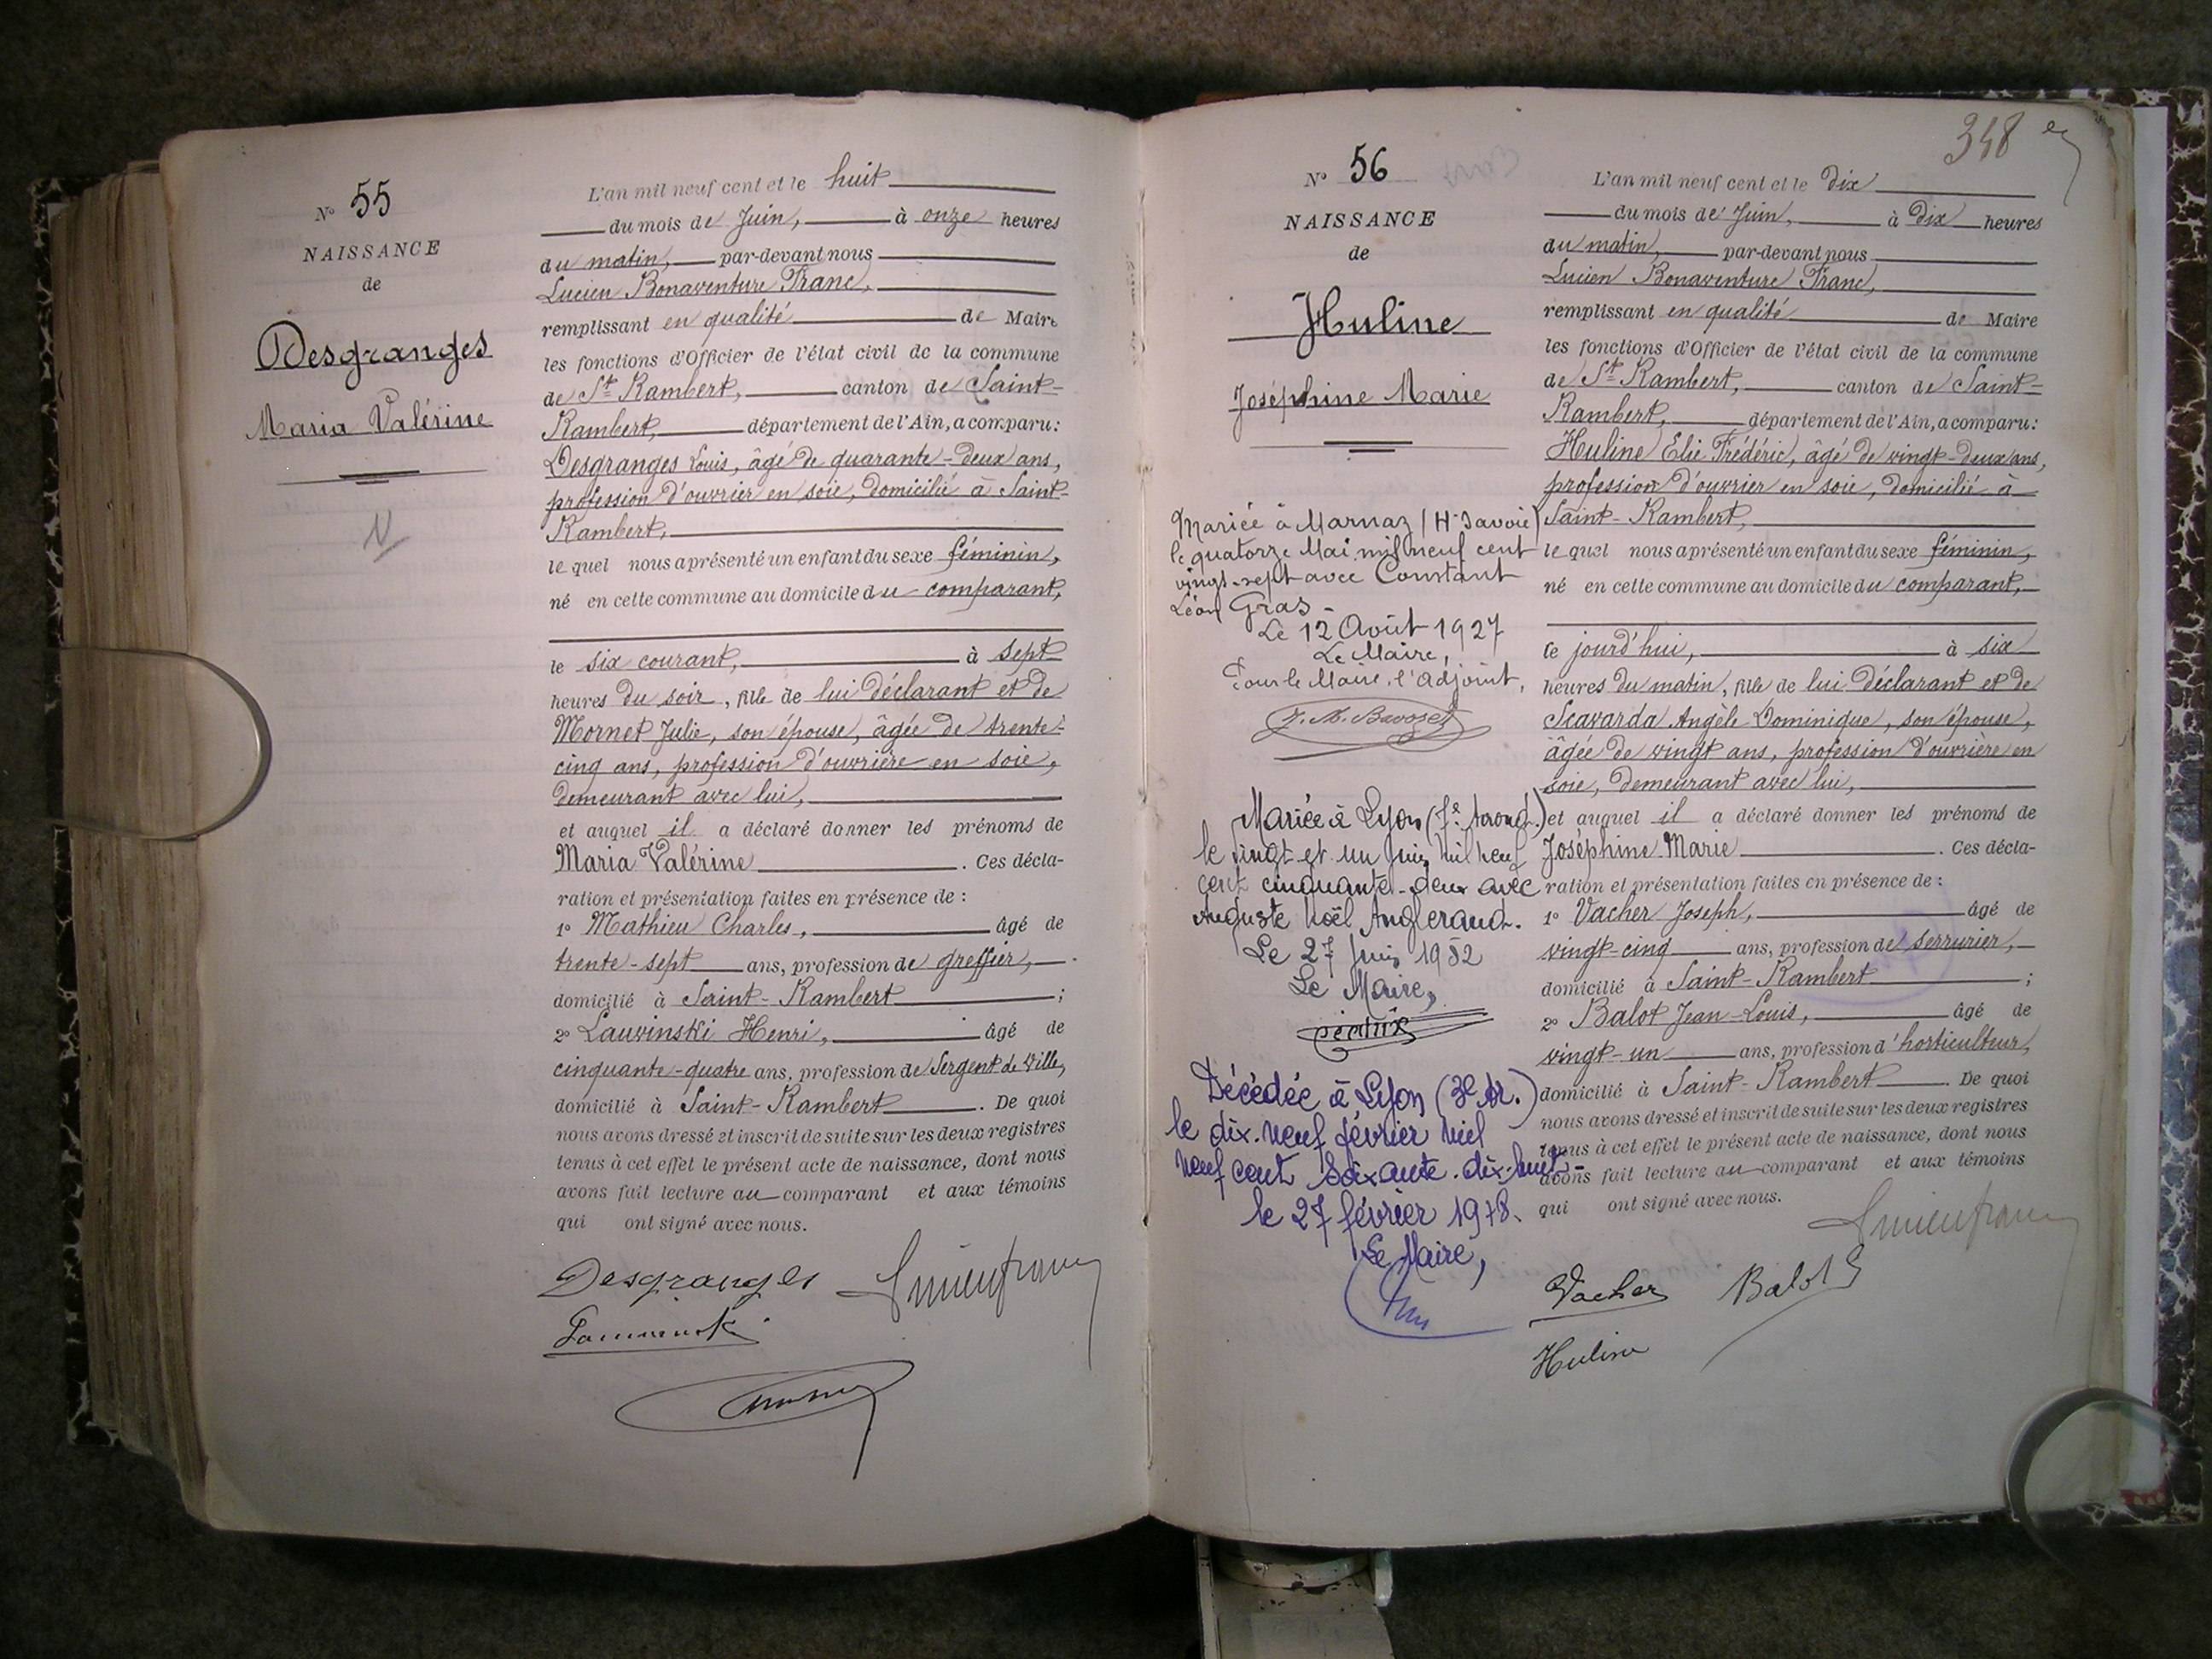 N° 55
NAISSANCE
de
Desgranges
Maria Valérine
L'an mil neuf cent et le huit
du mois de Juin, à onze heures
du matin, par-devant nous
Lucien Bonaventure Franc,
remplissant en qualité de Maire
les fonctions d'Officier de l'état civil de la commune
de St Rambert, canton de Saint-
Rambert, département de l'Ain, a comparu:
Desgranges Louis, âgé de quarante-deux ans,
profession d'ouvrier en soie, domicilié à Saint-
Rambert,
le quel nous a présenté un enfant du sexe féminin,
né en cette commune au domicile du comparant,
le six courant, à sept
heures du soir, fille de lui déclarant et de
Mornet Julie, son épouse, âgée de trente-
cinq ans, profession d'ouvrière en soie,
demeurant avec lui,
et auquel il a déclaré donner les prénoms de
Maria Valérine. Ces décla-
ration et présentation faites en présence de :
1° Mathieu Charles, âgé de
trente-sept ans, profession de greffier,
domicilié à Saint-Rambert ;
2° Lauvinski Henri, âgé de
cinquante-quatre ans, profession de Sergent de Ville,
domicilié à Saint-Rambert. De quoi
nous avons dressé et inscrit de suite sur les deux registres
tenus à cet effet le présent acte de naissance, dont nous
avons fait lecture au comparant et aux témoins
qui ont signé avec nous.
Desgranges
348
N° 56
NAISSANCE
de
Huline
Joséphine Marie
Mariée à Marnaz (Hte Savoie)
le quatorze Mai mil neuf cent
vingt-sept avec Constant
Léon Gras -
Le 12 Août 1927
Le Maire,
Pour le Maire, l'adjoint,
Mariée à Lyon (7e Arrond.)
le vingt et un juin mil neuf
cent cinquante-deux avec
Auguste Noël Angleraud.
Le 27 Juin 1952
Le Maire,
Décédée à Lyon (3e Ar.)
le dix-neuf février mil
neuf cent soixante-dix-huit-
le 27 février 1978.
Le Maire,
L'an mil neuf cent et le dix
du mois de Juin, à dix heures
du matin, par-devant nous
Lucien Bonaventure Franc,
remplissant en qualité de Maire
les fonctions d'Officier de l'état civil de la commune
de St Rambert, canton de Saint-
Rambert, département de l'Ain, a comparu:
Huline Elie Frédéric, âgé de vingt-deux ans,
profession d'ouvrier en soie, domicilié à
Saint-Rambert,
le quel nous a présenté un enfant du sexe féminin,
né en cette commune au domicile du comparant,
ce jourd'hui, à six
heures du matin, fille de lui déclarant et de
Scavarda Angèle-Dominique, son épouse,
âgée de vingt ans, profession d'ouvrière en
soie, demeurant avec lui,
et auquel il a déclaré donner les prénoms de
Joséphine Marie. Ces décla-
ration et présentation faites en présence de :
1° Vacher Joseph, âgé de
vingt-cinq ans, profession de serrurier,
domicilié à Saint-Rambert ;
2° Balot Jean-Louis, âgé de
vingt-un ans, profession d'horticulteur,
domicilié à Saint-Rambert. De quoi
nous avons dressé et inscrit de suite sur les deux registres
tenus à cet effet le présent acte de naissance, dont nous
avons fait lecture au comparant et aux témoins
qui ont signé avec nous.
Vacher Balot
Huline